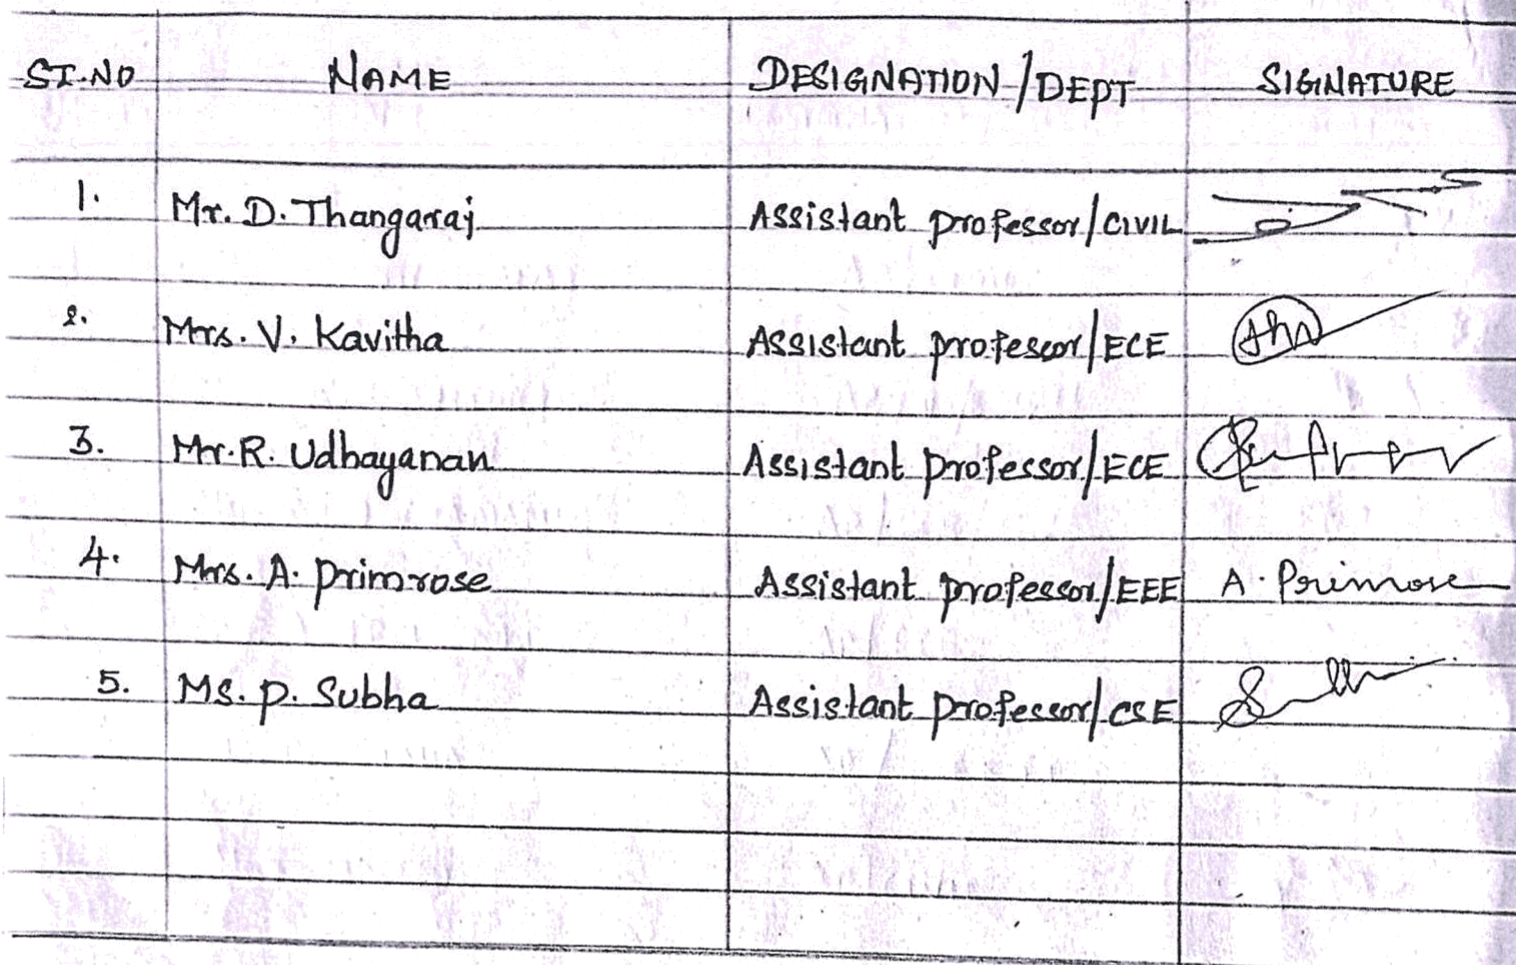 SI.NO NAME DESIGNATION/DEPT SIGINATURE
1. Mr. D. Thangaraj Assistant professor/CIVIL
2. Mrs. V. Kavitha Assistant professor/ECE
3. Mr. R. Udhayanan Assistant professor/ECE
4. Mrs. A. primrose Assistant professor/EEE A. Primrose
5. Ms. p. Subha Assistant professor/CSE